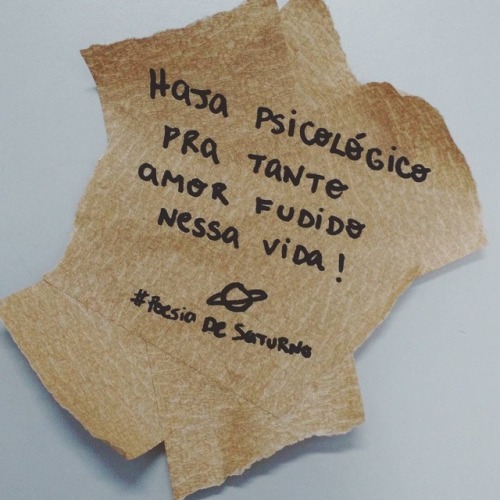 Haja psicológico
pra tanto
amor fudido
nessa vida!
#Poesia de Saturno